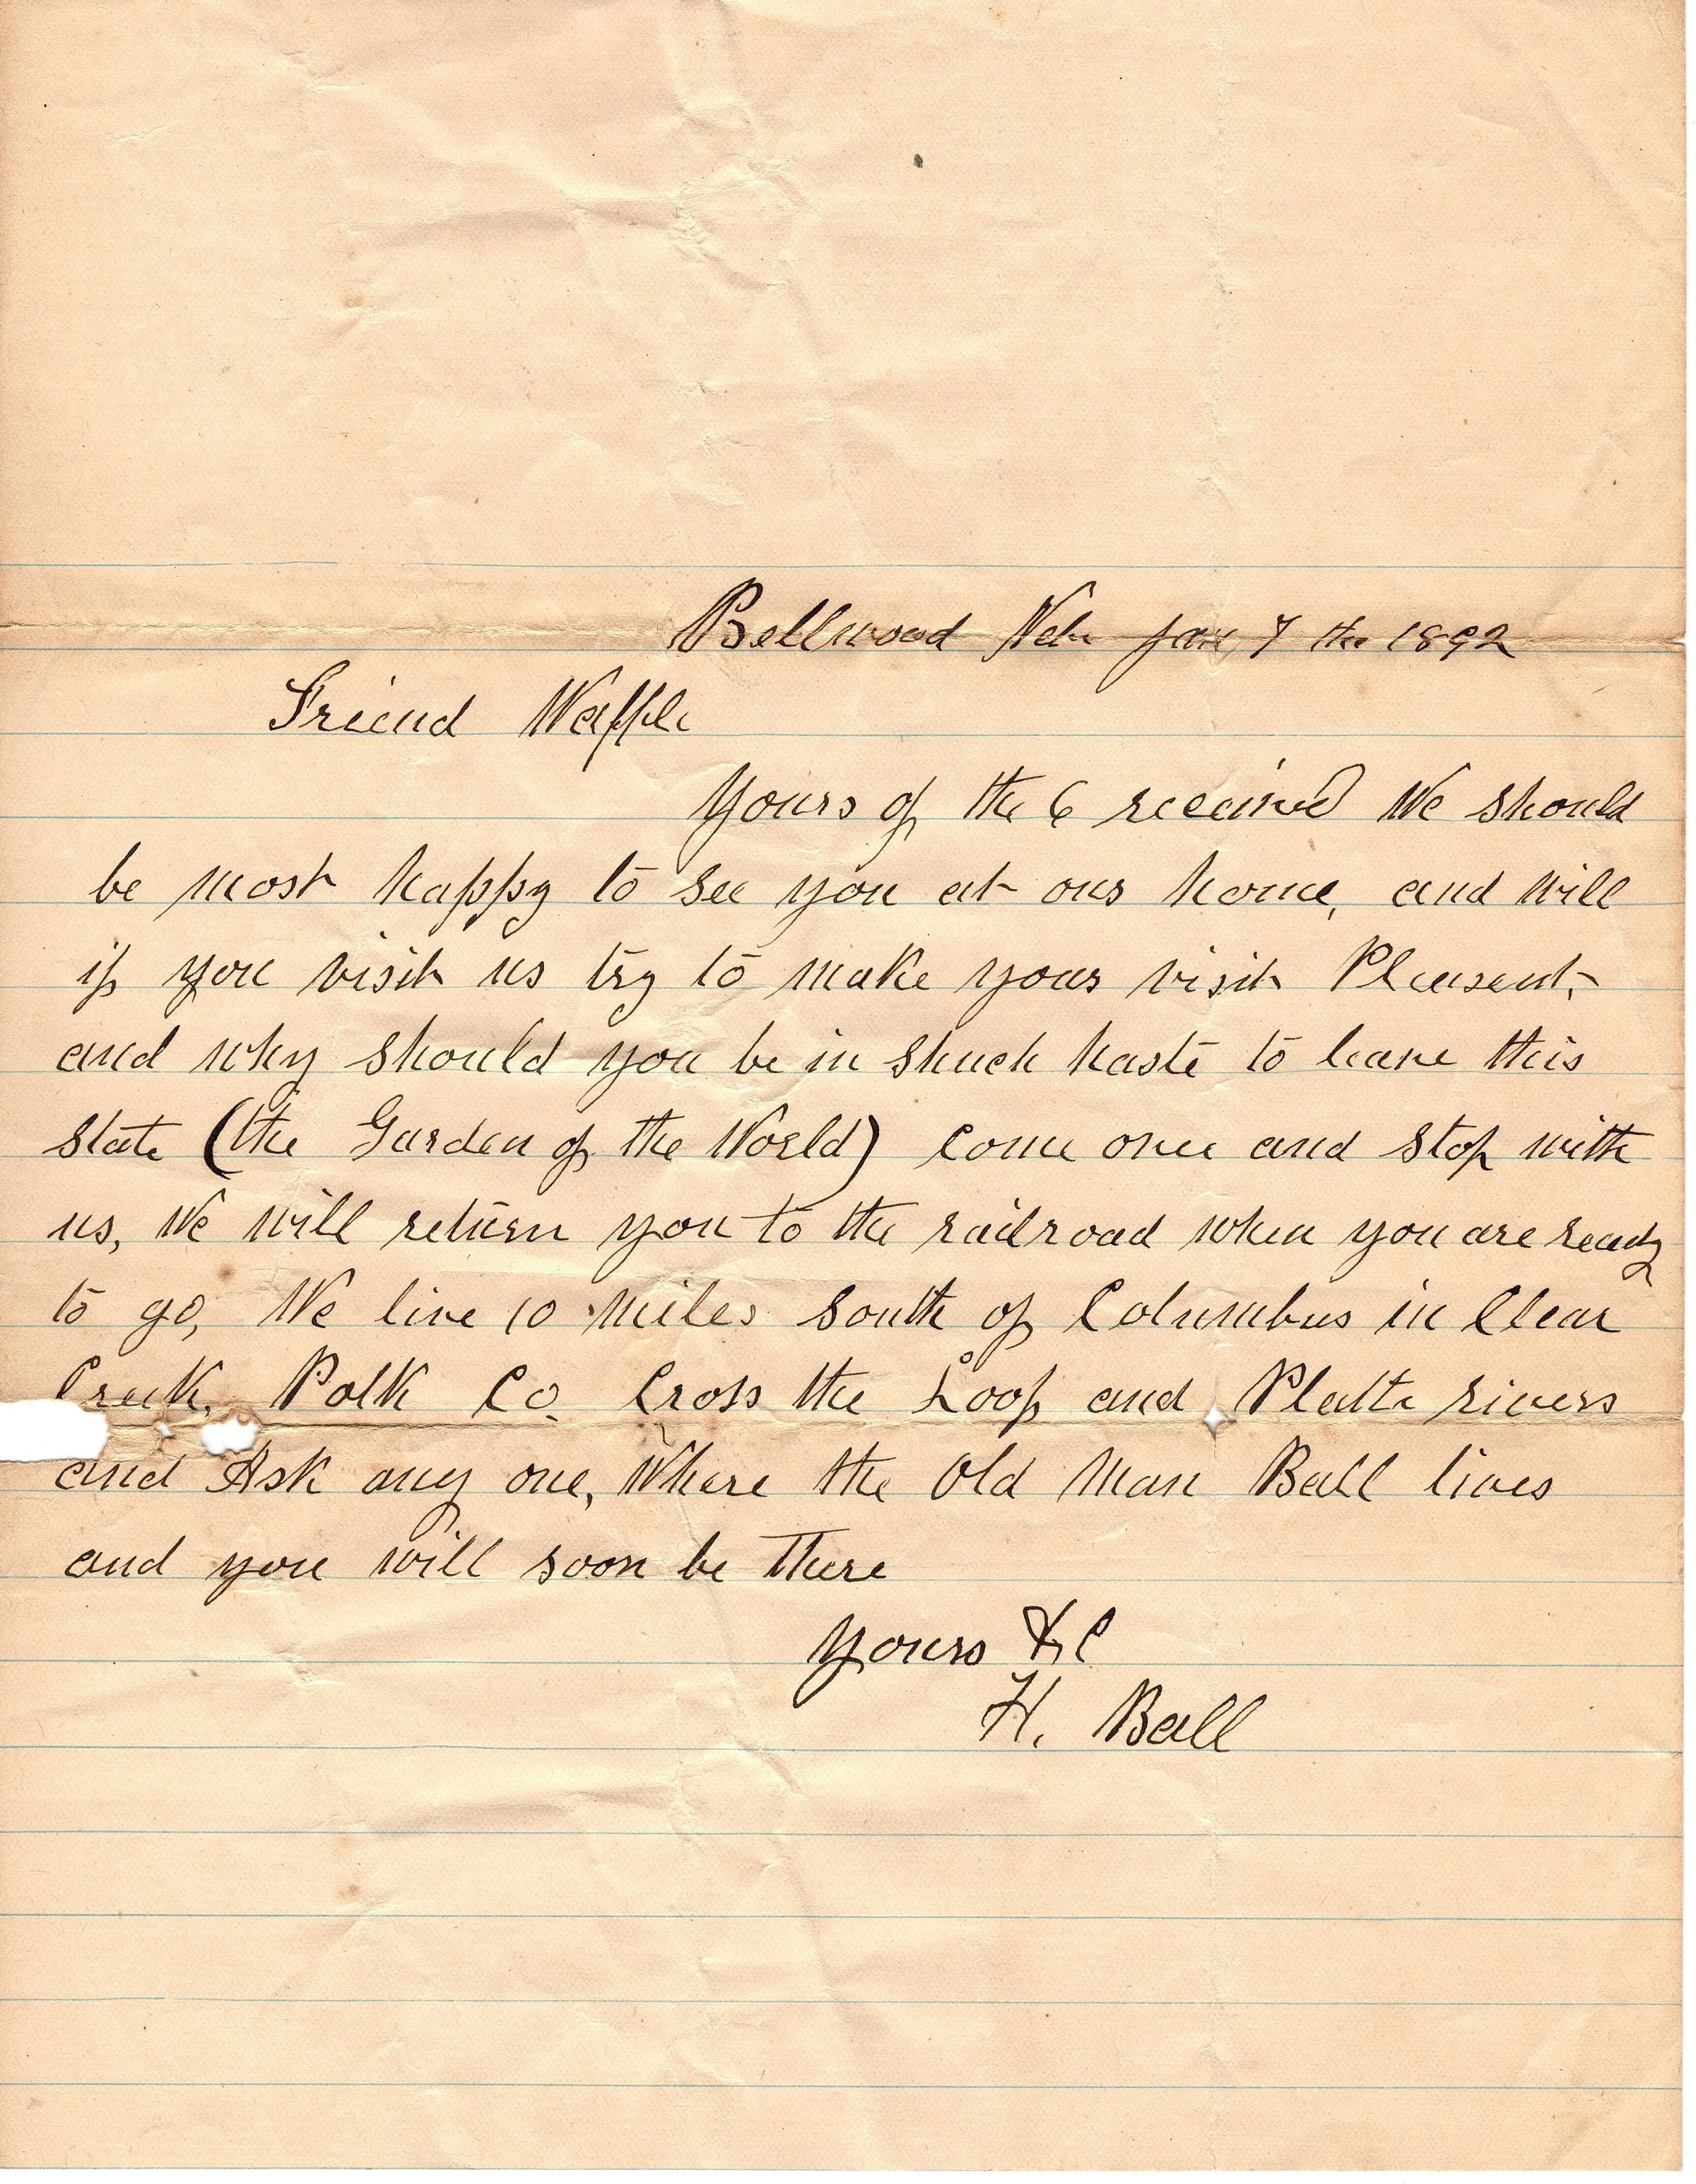 Bellwood Neb Jan 7 the 1892
Friend Waffle
Yours of the 6 received We should
be most happy to see you at our home, and will
if you visit us try to make your visit Pleasent,
and why should you be in shuch haste to leave this
state (the Garden of the World) Come over and stop with
us, We will return you to the railroad when you are ready
to go, We live 10 miles South of Columbus in Clear
Creek, Polk Co. Cross the Loop and Platte rivers
and Ask any one, Where the Old Man Ball lives
and you will soon be there
Yours &c
H. Ball